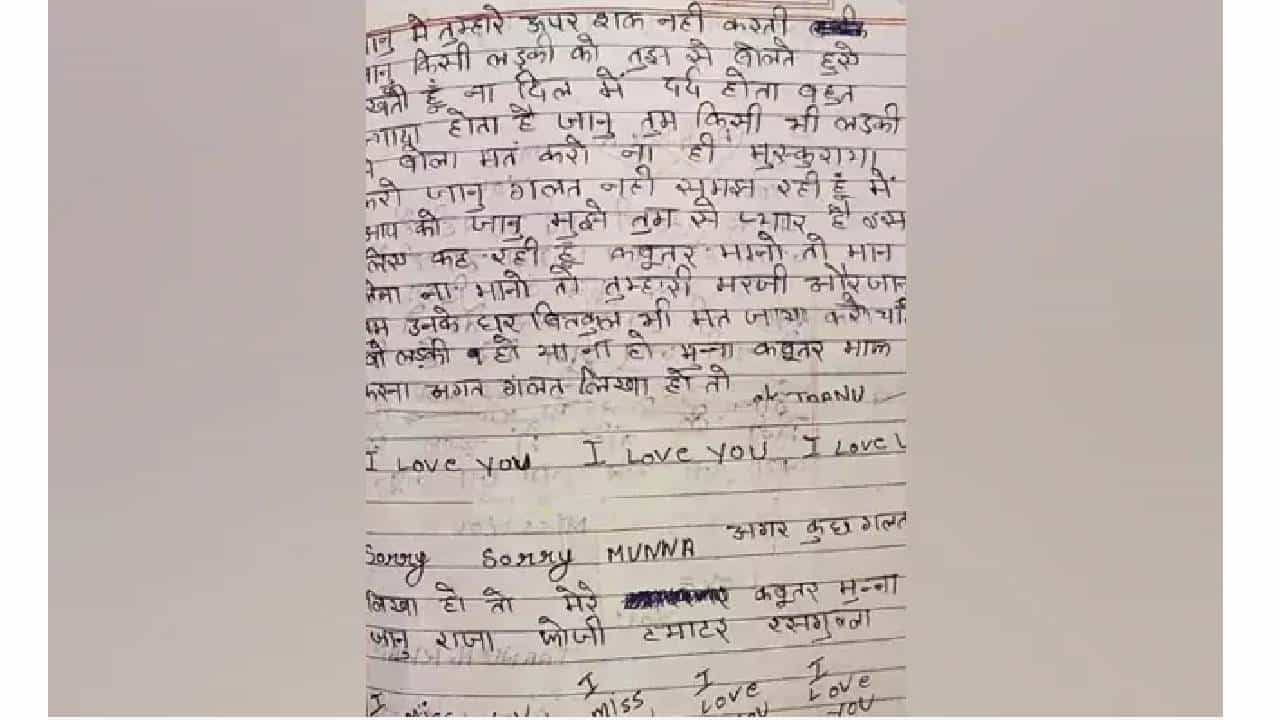 ानु मे तुम्हारे ऊपर शक नही करती
ानु किसी लड़की को तुझ से बोलते हुए
खती हूँ ना दिल में दर्द होता बहुत
होता है जानु तुम किसी भी लड़की
बोला मत करो ना ही मुस्कुराया
करो जानु गलत नही समझ रही हूं में
आप को जानु मुझे तुम से प्यार है इस
लिए कह रही हूँ कबूतर मानो तो मान
लेना ना मानो तो तुम्हारी मरजी और जान
उनके घर बिलकुल भी मत जाया करो चाहे
वो लड़की हो या ना हो मुन्ना कबूतर माफ
करना अगत गलत लिखा हो तो
ok JAANU
I Love you I Love you I Love
अगर कुछ गलत
Sorry Sorry MUNNA
लिखा हो तो मेरे कबूतर मुन्ना
जानु राजा फोजी टमाटर रसगुल्ला
I I I
I miss Love Love
you